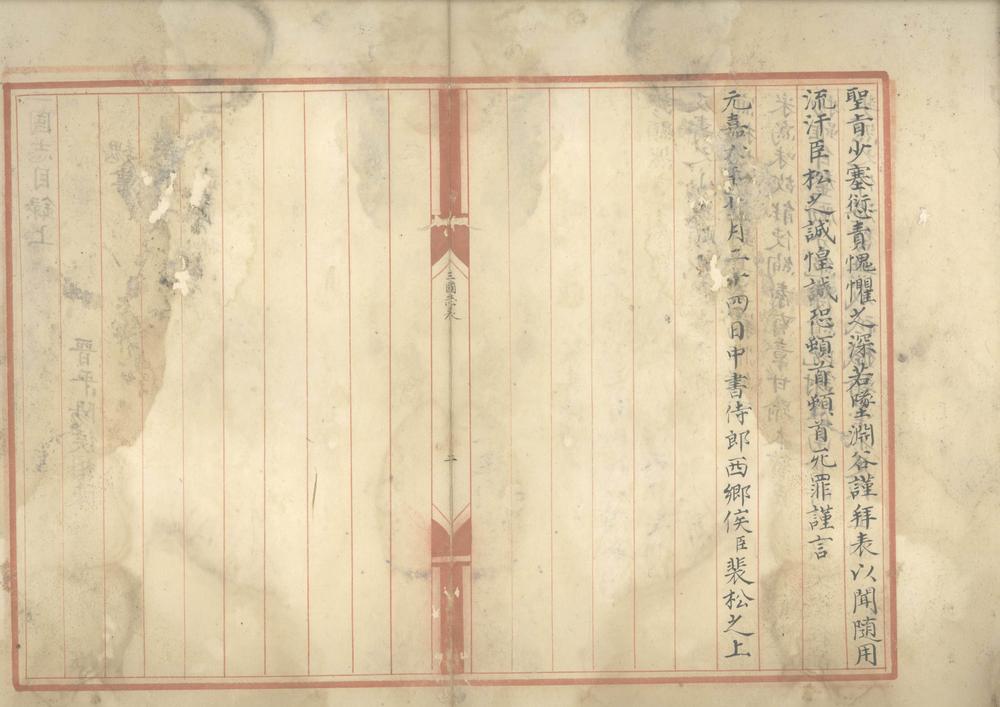 聖旨少塞愆責愧懼之深若墜淵谷謹拜表以聞隨用
流汗臣松之誠惶誠恐頓首頓首死罪謹言
元嘉六年七月二十四日中書侍郎西鄉侯臣裴松之上
三國志表
二
國志目録上
晋平陽侯相